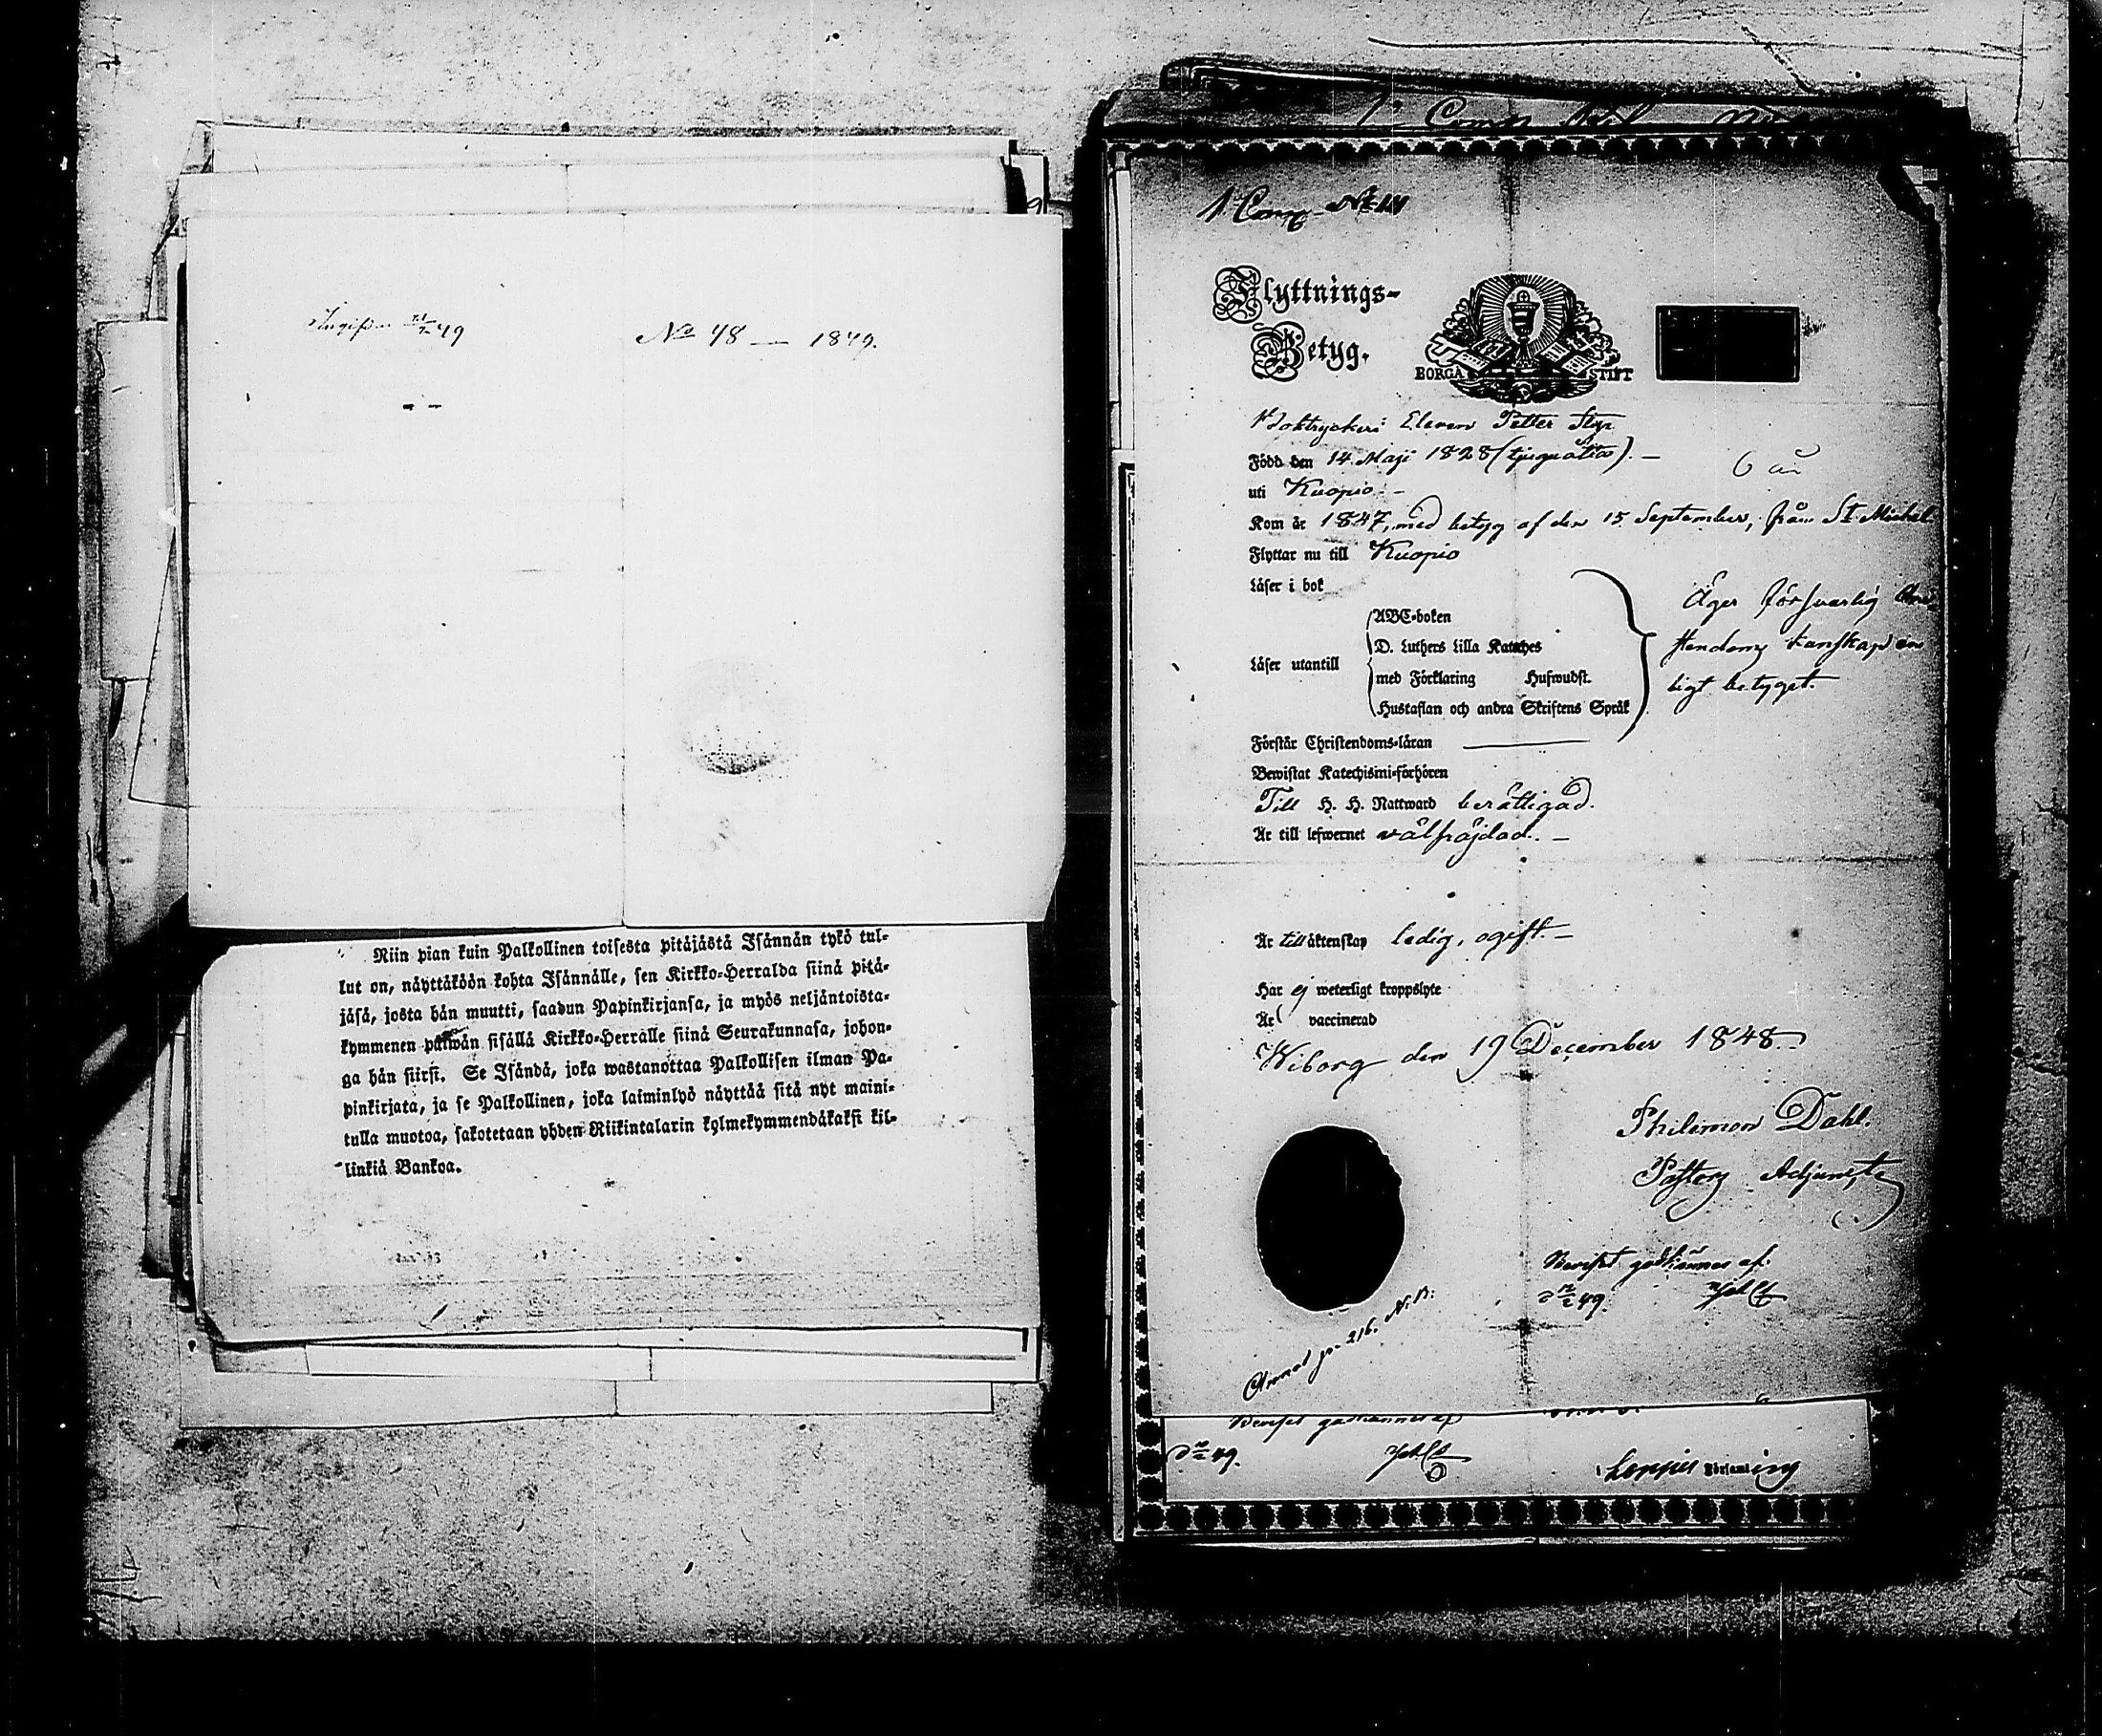 No 48 — 1849.
Niin pian kuin Palkollinen toisesta pitäjästä Isännän tykö tul-
lut on, näyttäköön kohta Isännälle, sen Kirkko-Herralda siinä pitä-
jäsä, josta hän muutti, saadun Papinkirjansa, ja myös neljäntoista-
kymmenen päiwän sisällä Kirkko-Herralle siinä Seurakunnasa, johon-
ga hän siirsi. Se Isändä, joka wastanottaa Palkollisen ilman Pa-
pinkirjata, ja se Palkollinen, joka laiminlyö näyttää sitä nyt maini-
tulla muotoa, sakotetaan yhden Riikintalarin kolmekymmendäkaksi kil-
linkiä Bankoa.
1 Comp
Flyttnings-
Betyg.
BORGÅ STIFT
Boktryckeri Eleven Petter
Född den 14 Maji 1828 (tjuguåtta). —
6 år
uti Kuopio. —
Kom år 1847, med betyg af den 15 September, från St Michel
Flyttar nu till Kuopio
Läser i bok
Läser utantill
ABC-boken
D. Luthers Lilla Kateches
med Förklaring Hufwudst.
Hustaflan och andra Skriftens Språk
Äger försvarlig
kunskap en
ligt betyget.
Förstår Christendoms-läran
Bewistat Katechismi-förhören
Till H. H. Nattward berättigad.
Är till lefwernet välfräjdad. —
Är till äktenskap ledig, ogift. —
Har ej weterligt kroppslyte
Är vaccinerad
Wiborg den 19 December 1848.
Philemon Dahl.
Pastors Adjunct
Beviset godkännes af:
49.
Annot p. 216. N. B.
Beviset godkännes af
49.
i Loppis Församling